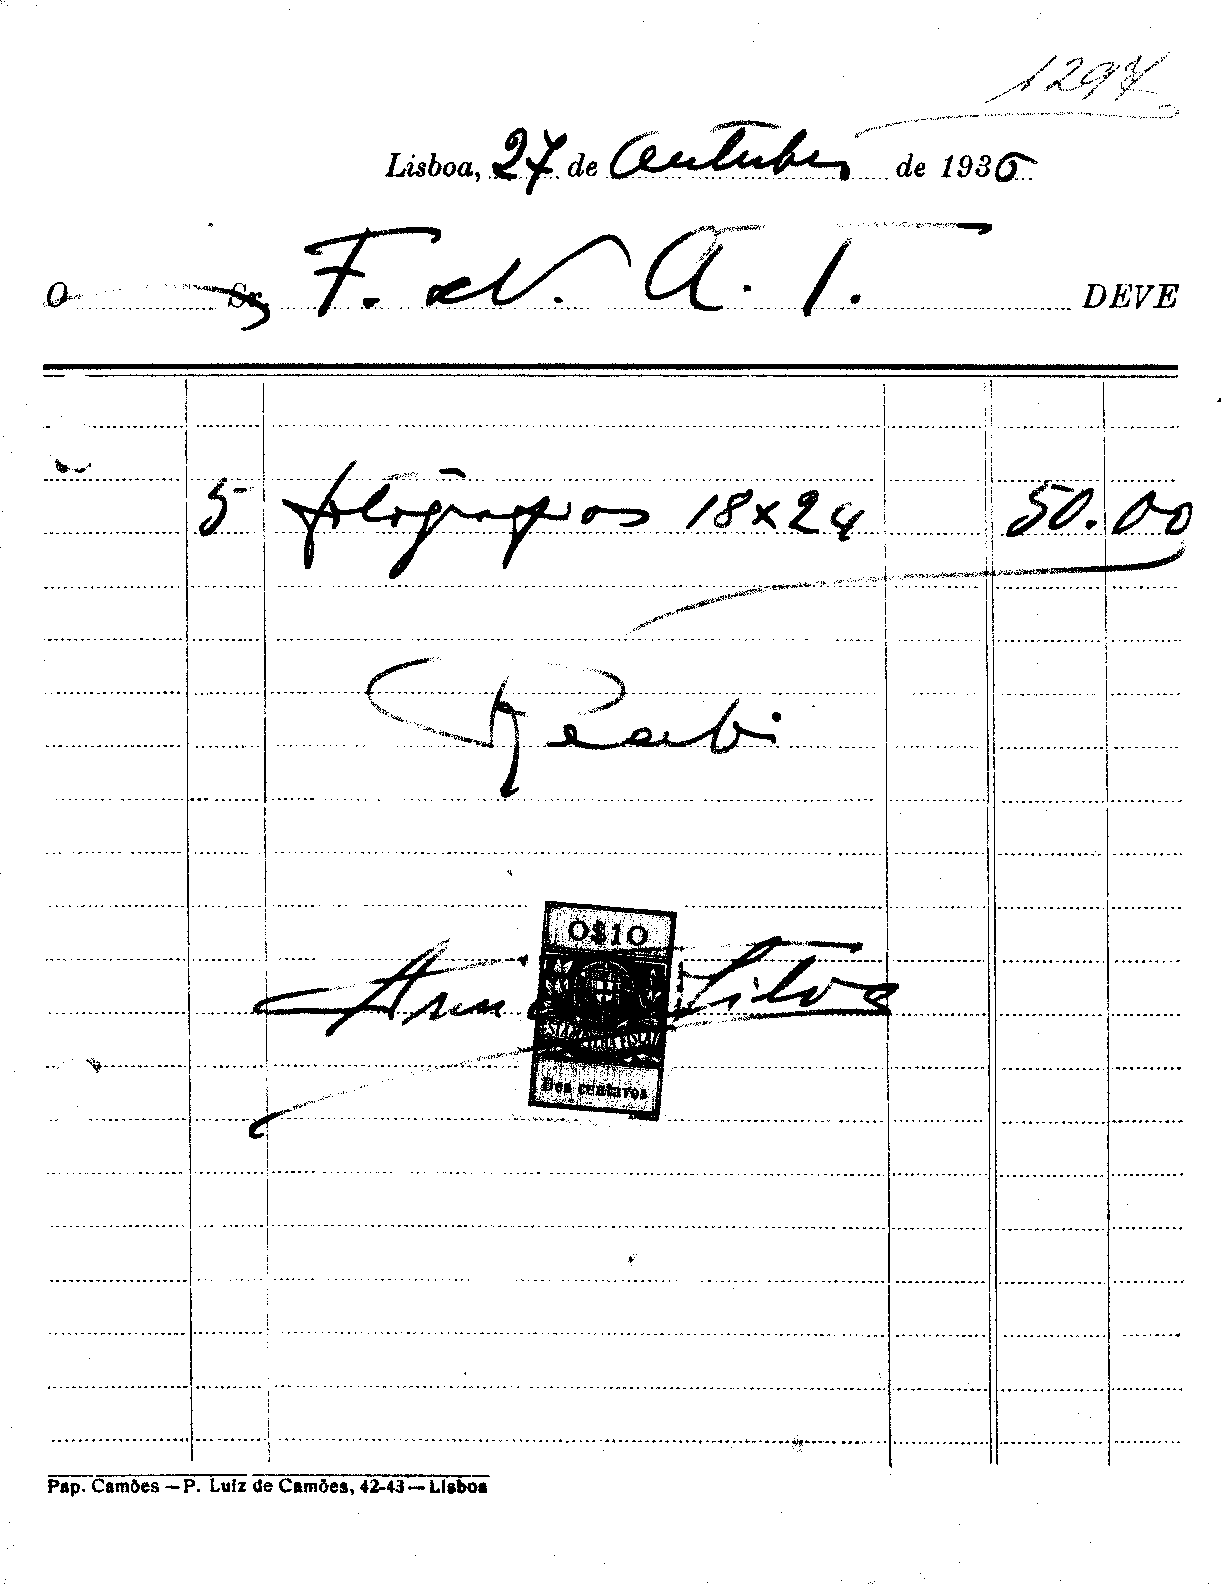 1297
Lisboa, 27 de Outubro de 1935
O Sr. F. N. A. T. DEVE
5 fotografias 18x24 50.00
Recebi
0$10
Silva
Dez centavos
Pap. Camões — P. Luiz de Camões, 42-43 — Lisboa